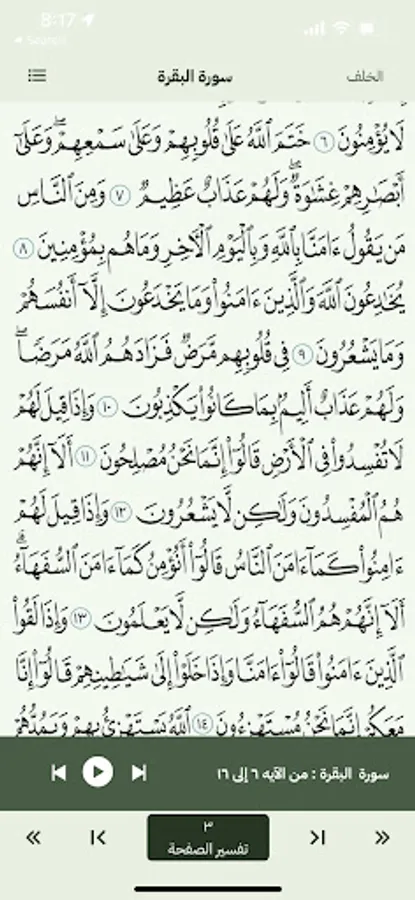 8:17
Search
الخلف
سورة البقرة
لَا يُؤْمِنُونَ ٦ خَتَمَ ٱللَّهُ عَلَىٰ قُلُوبِهِمْ وَعَلَىٰ سَمْعِهِمْ ۖ وَعَلَىٰٓ
أَبْصَٰرِهِمْ غِشَٰوَةٌ ۖ وَلَهُمْ عَذَابٌ عَظِيمٌ ٧ وَمِنَ ٱلنَّاسِ
مَن يَقُولُ ءَامَنَّا بِٱللَّهِ وَبِٱلْيَوْمِ ٱلْءَاخِرِ وَمَا هُم بِمُؤْمِنِينَ ٨
يُخَٰدِعُونَ ٱللَّهَ وَٱلَّذِينَ ءَامَنُوا۟ وَمَا يَخْدَعُونَ إِلَّآ أَنفُسَهُمْ
وَمَا يَشْعُرُونَ ٩ فِى قُلُوبِهِم مَّرَضٌ فَزَادَهُمُ ٱللَّهُ مَرَضًا ۖ
وَلَهُمْ عَذَابٌ أَلِيمٌۢ بِمَا كَانُوا۟ يَكْذِبُونَ ١٠ وَإِذَا قِيلَ لَهُمْ
لَا تُفْسِدُوا۟ فِى ٱلْأَرْضِ قَالُوٓا۟ إِنَّمَا نَحْنُ مُصْلِحُونَ ١١ أَلَآ إِنَّهُمْ
هُمُ ٱلْمُفْسِدُونَ وَلَٰكِن لَّا يَشْعُرُونَ ١٢ وَإِذَا قِيلَ لَهُمْ
ءَامِنُوا۟ كَمَآ ءَامَنَ ٱلنَّاسُ قَالُوٓا۟ أَنُؤْمِنُ كَمَآ ءَامَنَ ٱلسُّفَهَآءُ ۗ
أَلَآ إِنَّهُمْ هُمُ ٱلسُّفَهَآءُ وَلَٰكِن لَّا يَعْلَمُونَ ١٣ وَإِذَا لَقُوا۟
ٱلَّذِينَ ءَامَنُوا۟ قَالُوٓا۟ ءَامَنَّا وَإِذَا خَلَوْا۟ إِلَىٰ شَيَٰطِينِهِمْ قَالُوٓا۟ إِنَّا
مَعَكُمْ إِنَّمَا نَحْنُ مُسْتَهْزِءُونَ ١٤ ٱللَّهُ يَسْتَهْزِئُ بِهِمْ وَيَمُدُّهُمْ
سورة البقرة : من الآيه ٦ إلى ١٦
٣
تفسير الصفحة